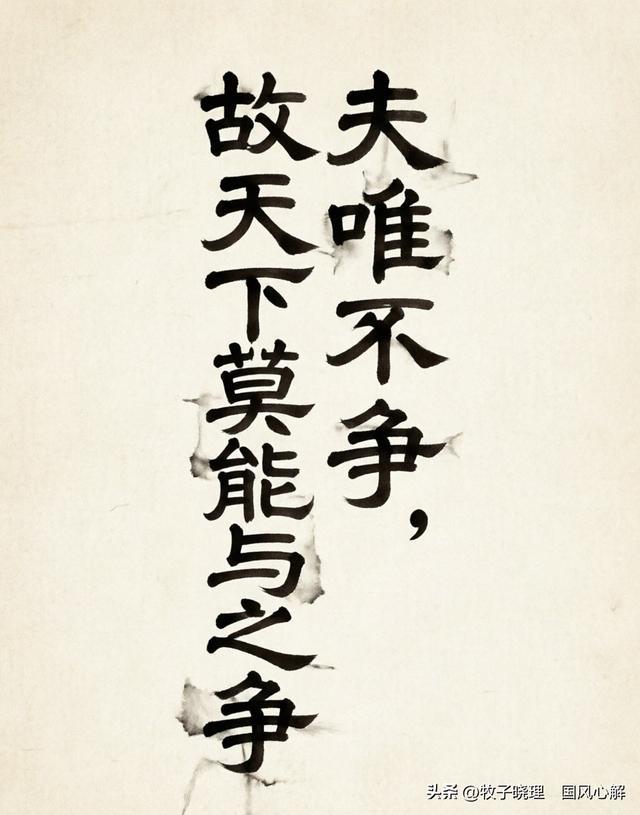 夫唯不争，
故天下莫能与之争
头条 @牧子晓理 国风心解